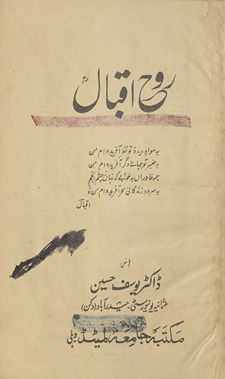 روح اقبال
بہ سواد دیدۂ تو نظر آفریدہ ام من
بہ ضمیر تو جہانے دگر آفریدہ ام من
ہمہ خاوراں بہ خوابے کہ نہاں ز چشم انجم
بہ سرود زندگانی سحر آفریدہ ام من
اقبال
از
ڈاکٹر یوسف حسین
عثمانیہ یونیورسٹی حیدرآباد (دکن)
مکتبہ جامعہ لمیٹڈ دہلی